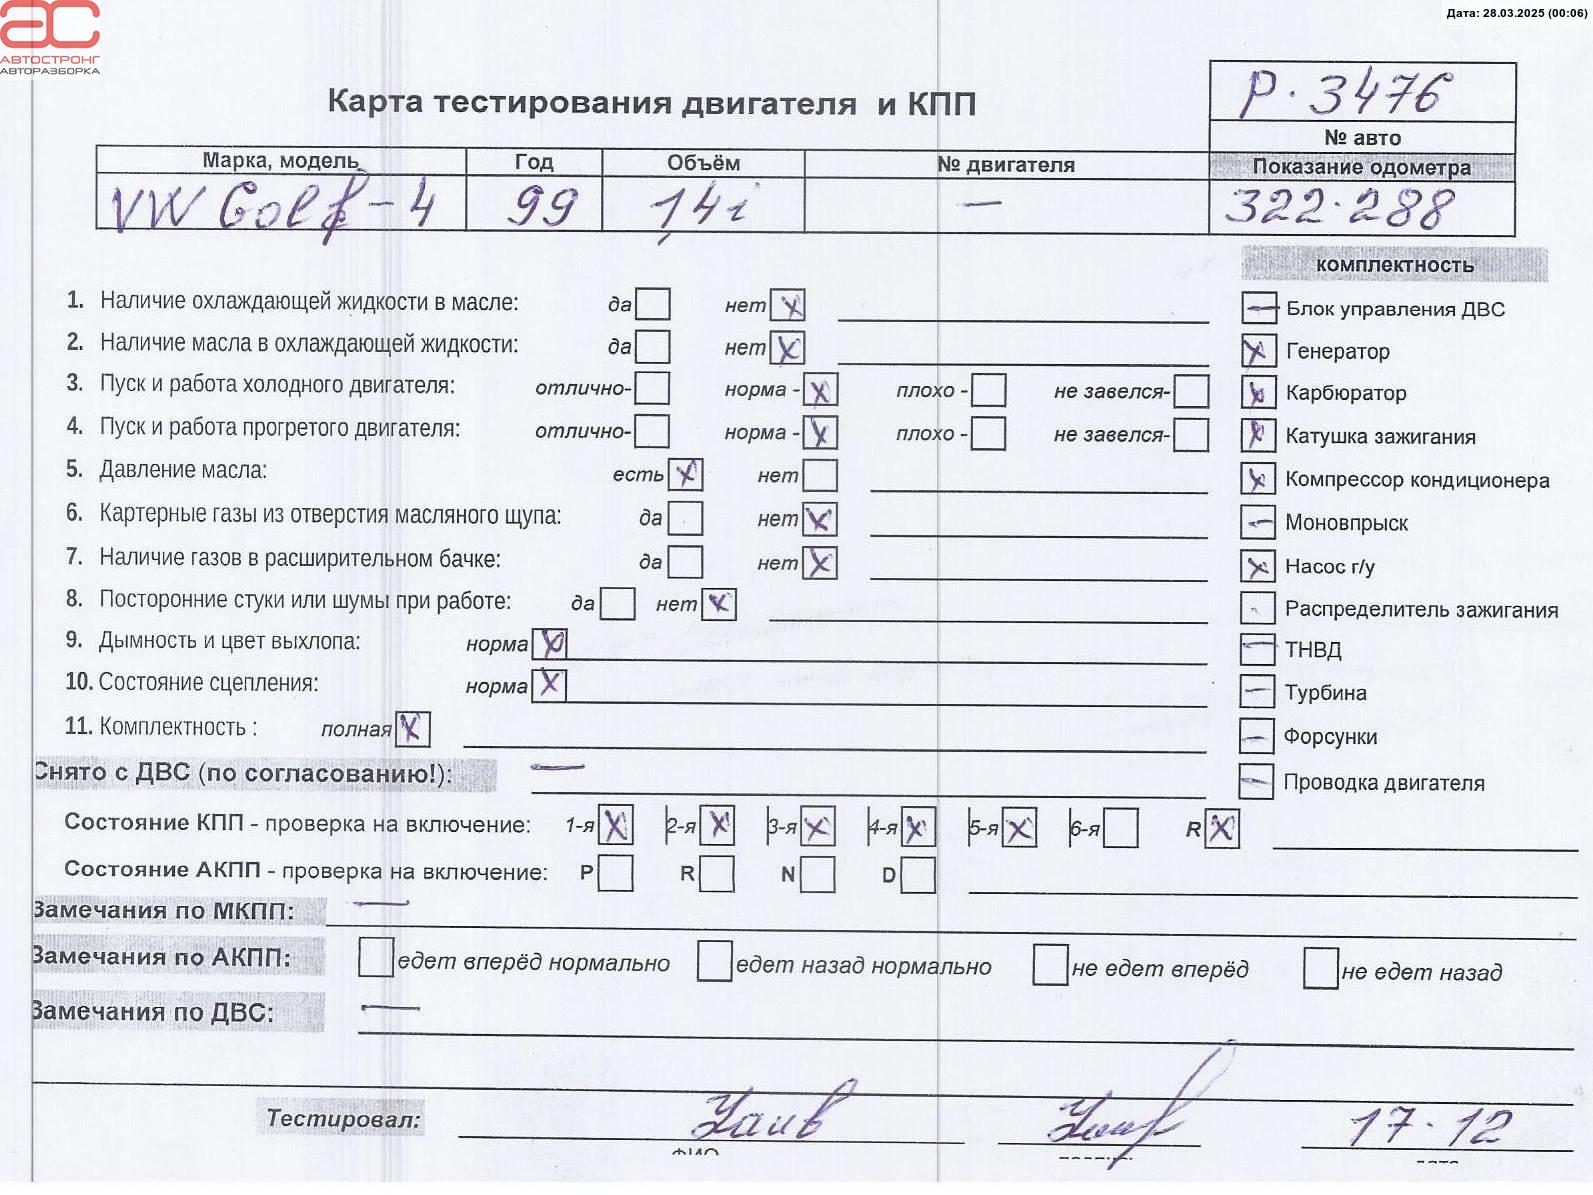 Дата: 28.03.2025 (00:06)
АС
АВТОСТРОНГ
АВТОРАЗБОРКА
Карта тестирования двигателя и КПП
P. 3476
№ авто
Марка, модель Год Объём № двигателя Показание одометра
VW Golf-4 99 1,4i — 322.288
комплектность
1. Наличие охлаждающей жидкости в масле: да нет x
2. Наличие масла в охлаждающей жидкости: да нет x
3. Пуск и работа холодного двигателя: отлично- норма - x плохо - не завелся-
4. Пуск и работа прогретого двигателя: отлично- норма - x плохо - не завелся-
5. Давление масла: есть x нет
6. Картерные газы из отверстия масляного щупа: да нет x
7. Наличие газов в расширительном бачке: да нет x
8. Посторонние стуки или шумы при работе: да нет x
9. Дымность и цвет выхлопа: норма x
10. Состояние сцепления: норма x
11. Комплектность : полная x
— Блок управления ДВС
x Генератор
x Карбюратор
x Катушка зажигания
x Компрессор кондиционера
— Моновпрыск
x Насос г/у
- Распределитель зажигания
— ТНВД
— Турбина
— Форсунки
— Проводка двигателя
Снято с ДВС (по согласованию!): —
Состояние КПП - проверка на включение: 1-я x 2-я x 3-я x 4-я x 5-я x 6-я R x
Состояние АКПП - проверка на включение: P R N D
Замечания по МКПП: —
Замечания по АКПП: едет вперёд нормально едет назад нормально не едет вперёд не едет назад
Замечания по ДВС: —
Тестировал: 17.12
ФИО подпись дата